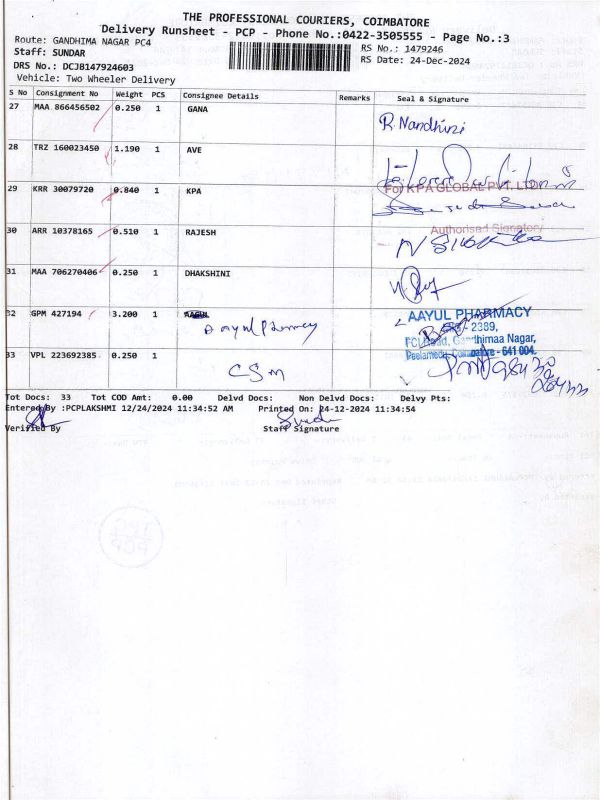 THE PROFESSIONAL COURIERS, COIMBATORE
Delivery Runsheet - PCP - Phone No.:0422-3505555 - Page No.:3
Route: GANDHIMA NAGAR PC4 RS No.: 1479246
Staff: SUNDAR RS Date: 24-Dec-2024
DRS No.: DCJB147924603
Vehicle: Two Wheeler Delivery
S No Consignment No Weight PCS Consignee Details Remarks Seal & Signature
27 MAA 866456502 0.250 1 GANA
R. Nandhini
28 TRZ 160023450 1.190 1 AVE
29 KRR 30079720 0.840 1 KPA For KPA GLOBAL PVT. LTD
30 ARR 10378165 0.510 1 RAJESH Authorised Signatory
31 MAA 706270406 0.250 1 DHAKSHINI
32 GPM 427194 3.200 1 AAYUL PHARMACY
Aayul Pharmacy 2389,
FCI Road, Gandhimaa Nagar,
33 VPL 223692385 0.250 1 Peelamedu, Coimbatore - 641 004.
CSM
Tot Docs: 33 Tot COD Amt: 0.00 Delvd Docs: Non Delvd Docs: Delvy Pts:
Entered By :PCPLAKSHMI 12/24/2024 11:34:52 AM Printed On: 24-12-2024 11:34:54
Verified By Staff Signature